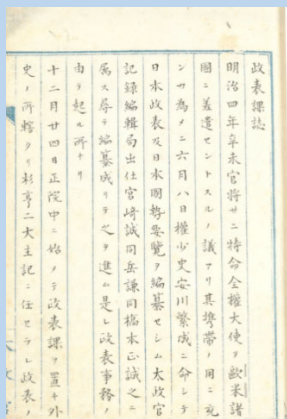 政表課誌
明治四年辛未官將サニ特命全權大使ヲ歐米諸
國ニ差遣セントスルノ議アリ其携帶ノ用ニ充
ンカ爲メニ六月八日權少史安川繁成ニ命シテ
日本政表及日本國勢要覽ヲ編纂セシム太政官
記錄編輯局出仕宮崎誠同岳謙同橋本正誠之ニ
属ス尋テ編纂成リテ之ヲ進ム是レ政表事務ノ
由テ起ル所ナリ
十二月廿四日正院中ニ始メテ政表課ヲ置キ外
史ノ所轄タリ杉亨二大主記ニ任セラレ政表ノ